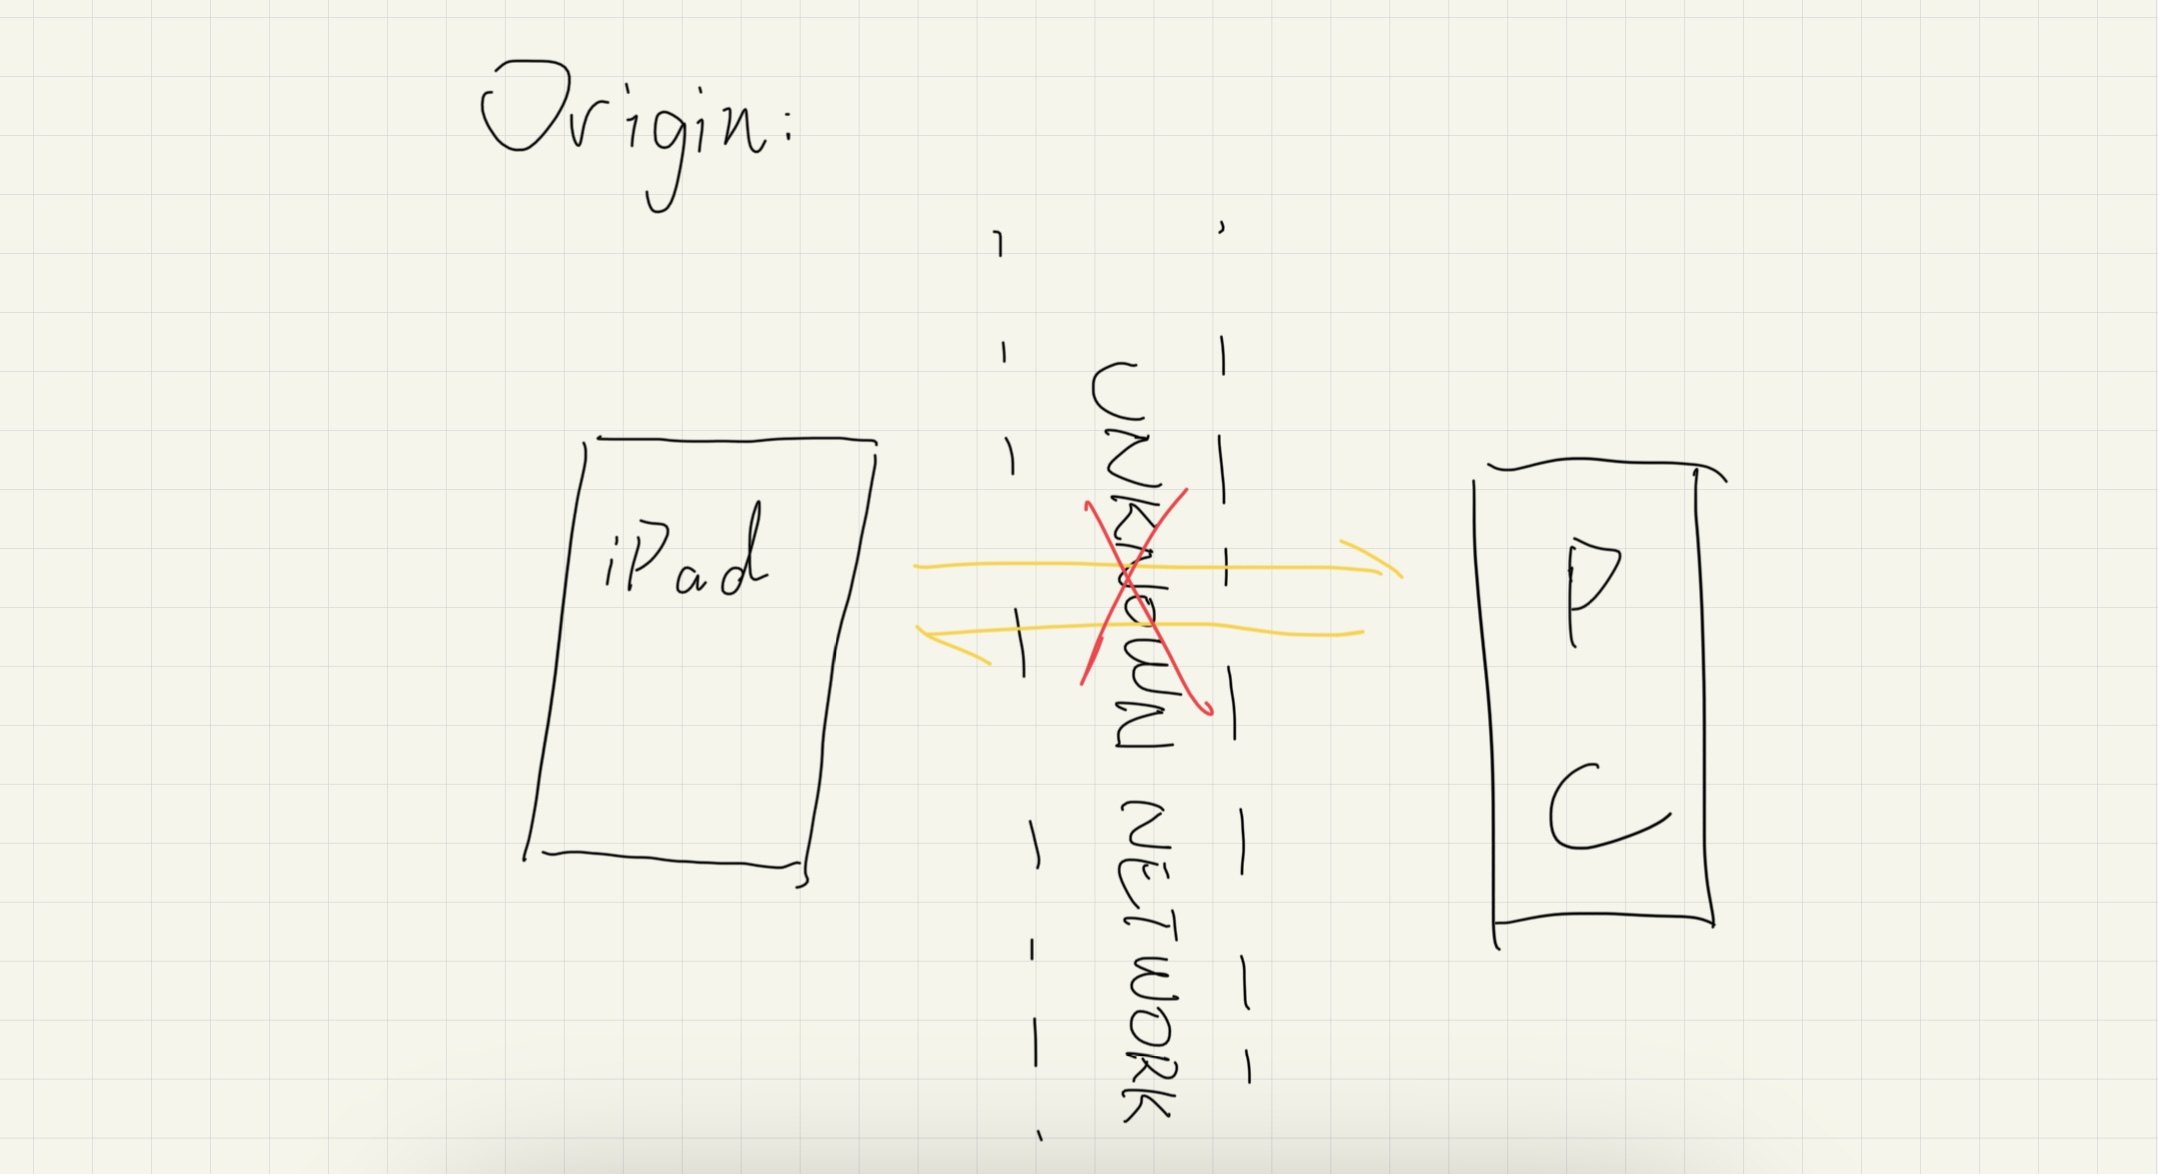 Origin:
iPad
UNKNOWN NETWORK
P
C